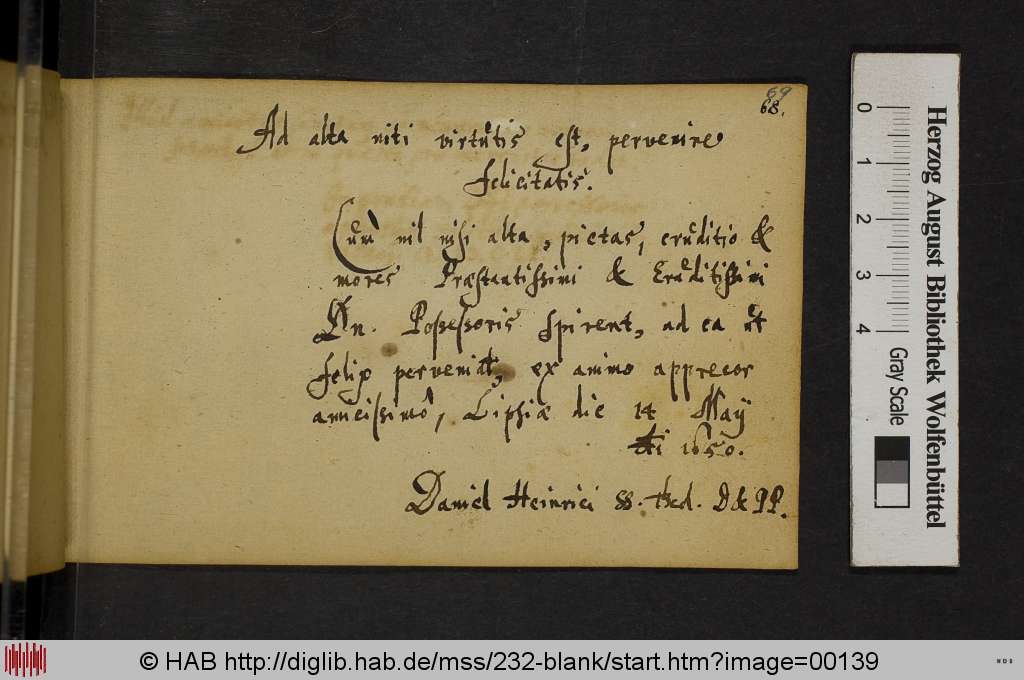 69
68.
Ad alta niti virtutis est, pervenire
felicitatis.
Cum nil nisi alta, pietas, eruditio &
mores Præstantissimi & Eruditissimi
Dn. Possessoris spirent, ad ea ut
felix perveniat, ex animo apprecor
amicissimo, Lipsiæ die 14 Maÿ
1650.
Daniel Heinrici SS. Theol. D & PP.
0
1
2
3
4
Gray Scale
Herzog August Bibliothek Wolfenbüttel
© HAB http://diglib.hab.de/mss/232-blank/start.htm?image=00139